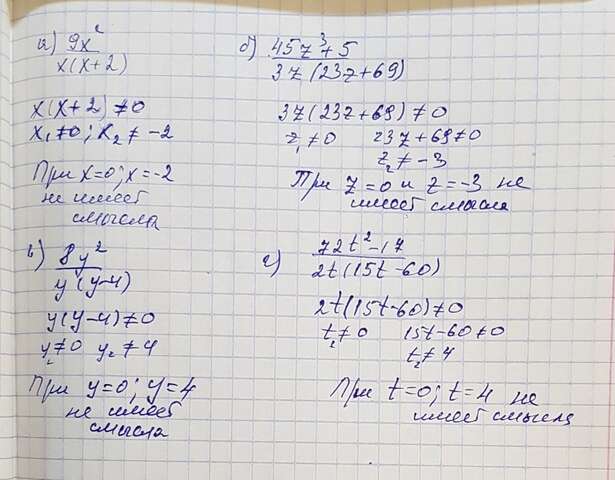 а) 9x²
x(x+2)
x(x+2) ≠0
x₁≠0; x₂ ≠ -2
При x=0; x=-2
не имеет
смысла
б) 45z³+5
3z(23z+69)
3z(23z+69) ≠0
z₁≠0 23z+69≠0
z₂ ≠ -3
При z=0 и z=-3 не
имеет смысла
в) 8y²
y(y-4)
y(y-4)≠0
y₁≠0 y₂≠4
При y=0; y=4
не имеет
смысла
г) 72t²-17
2t(15t-60)
2t(15t-60)≠0
t₁≠0 15t-60≠0
t₂≠4
При t=0; t=4 не
имеет смысла